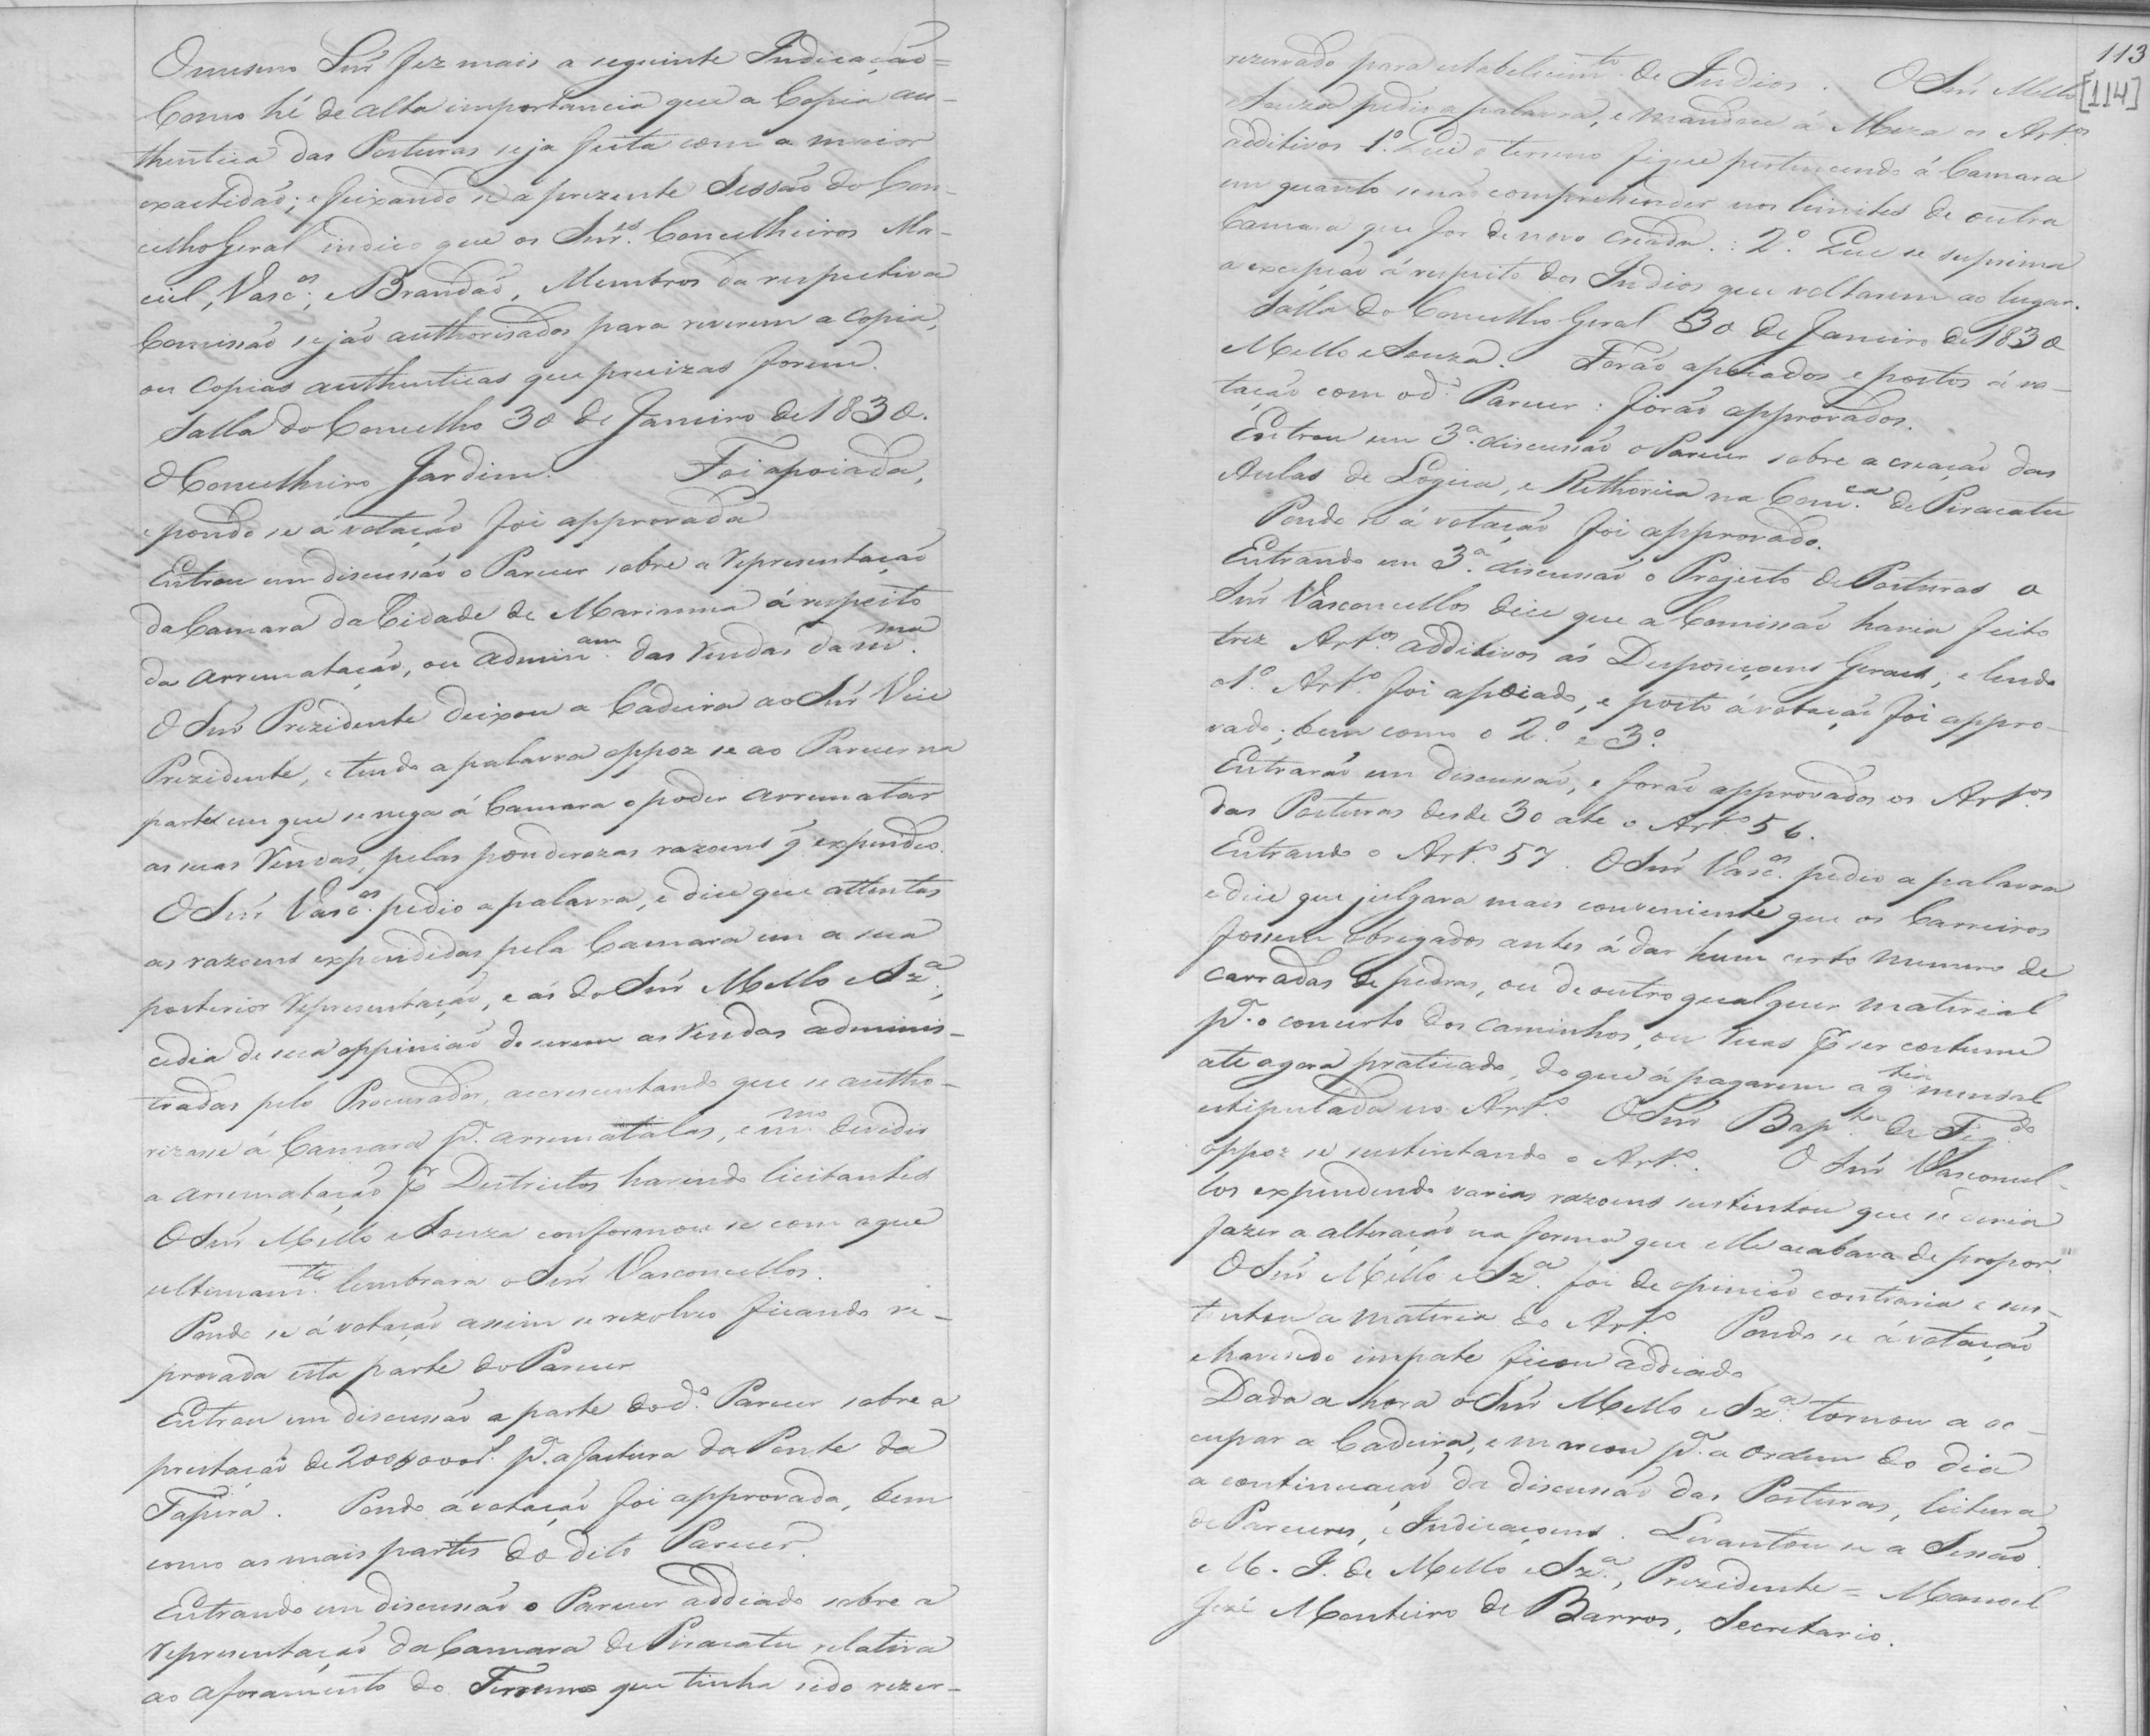 O mesmo Snr̃ fez mais a seguinte Indicação=
Como hé de alta importancia que a Copia au-
thentica das Posturas seja feita com a maior
exactidão; e feixando se a prezente Sessão do Con-
celho Geral indico que os Snr.es Concelheiros Ma-
ciel, Vasc.os, e Brandão, Membros da respectiva
Comissão sejão authorisados para reverem a Copia,
ou Copias authenticas que precizas forem.
Salla do Concelho 30 de Janeiro de 1830.
O Concelheiro Jardim. Foi apoiada,
e pondo se á votação foi approvada
Entrou em discussão o Parecer sobre a representação
da Camara da Cidade de Marianna á respeito
da arrematação, ou admin.am das rendas da m.ma
O Snr̃ Prezidente deixou a Cadeira ao Snr̃ Vice
Prezidente, e tendo a palavra oppoz se ao Parecer na
parte em que se nega á Camara o poder arrematar
as suas rendas, pelas ponderozas razoens q̃ expendeo.
O Snr̃ Vasc.os pedio a palavra, e dice que attentas
as razoens expendidas pela Camara em a sua
posterior representação, e ás do Snr̃ Mello e Sz.a,
cedia de sua oppinião de serem as rendas adminis-
tradas pelo Procurador, accrescentando que se autho-
rizasse á Camara p.a arrematalas, e m.mo devidir
a arrematação p.r Destrictos havendo licitantes
O Snr̃ Mello e Souza conformou se com a que
ultimam.te lembrara o Snr̃ Vasconcellos.
Pondo se á votação assim se rezolveo ficando re-
provada esta parte do Parecer
Entrou em discussão a parte do d.o Parecer sobre a
prestação de 200$000 r.s p.a a factura da Ponte da
Tapira. Pondo á votação foi approvada, bem
como as mais partes do dito Parecer.
Entrando em discussão o Parecer addiado sobre a
representação da Camara de Piracatu relativa
ao aforamento do Terreno que tinha sido rezer-
113
[114]
rezervado para estabelecim.to de Indios. O Snr̃ Mello
e Souza pedio a palavra, e mandou á Meza os Art.os
additivos 1.o Que o terreno fique pertencendo á Camara
em quanto se não comprehender nos limites de outra
Camara que for de novo creada.: 2.o Que se suprima
a excepção á respeito dos Indios que voltarem ao lugar.
Salla do Concelho Geral 30 de Janeiro de 1830
Mello e Souza. Forão apoiados e postos á vo-
tação com o d.o Parecer: forão approvados.
Entrou em 3.a discussão o Parecer sobre a creação das
Aulas de Logica, e Rethorica na Com.ca de Piracatu
Pondo se á votação foi approvado.
Entrando em 3.a discussão o Projecto de Posturas o
Snr̃ Vasconcellos dice que a Comissão havia feito
trez Art.os additivos ás Desposiçoens Geraes; e lendo
o 1.o Art.o foi apoiado, e posto á votação foi appro-
vado; bem como o 2.o e 3.o
Entrarão em discussão, e forão approvados os Art.os
das Posturas desde 30 ate o Art.o 56.
Entrando o Art.o 57. O Snr̃ Vasc.os pedio a palavra
e dice que julgava mais conveniente que os Carreiros
fossem obregados antes á dar hum certo numero de
carradas de pedras, ou de outro qualquer material
p.a o concerto dos caminhos, ou ruas p.r ser costume
ate agora praticado, do que á pagarem a q.tia mensal
estipulada no Art.o O Snr̃ Bap.ta de Fig.do
oppoz se sustentando o Art.o. O Snr̃ Vasconcel-
los expendendo varias razoens sustentou que se devia
fazer a alteração na forma que elle acabava de propor.
O Snr̃ Mello e Sz.a foi de opinião contraria e sus-
tentou a materia do Art.o Pondo se á votação
e havendo impate ficou addiado
Dada a hora o Snr̃ Mello e Sz.a tornou a oc-
cupar a Cadeira, e marcou p.a a ordem do dia
a continuação da discussão das Posturas, leitura
de Pareceres, e Indicaçoens. Levantou se a Sessão.
M. I. de Mello e Sz.a, Prezidente = Manoel
José Monteiro de Barros, Secretario.